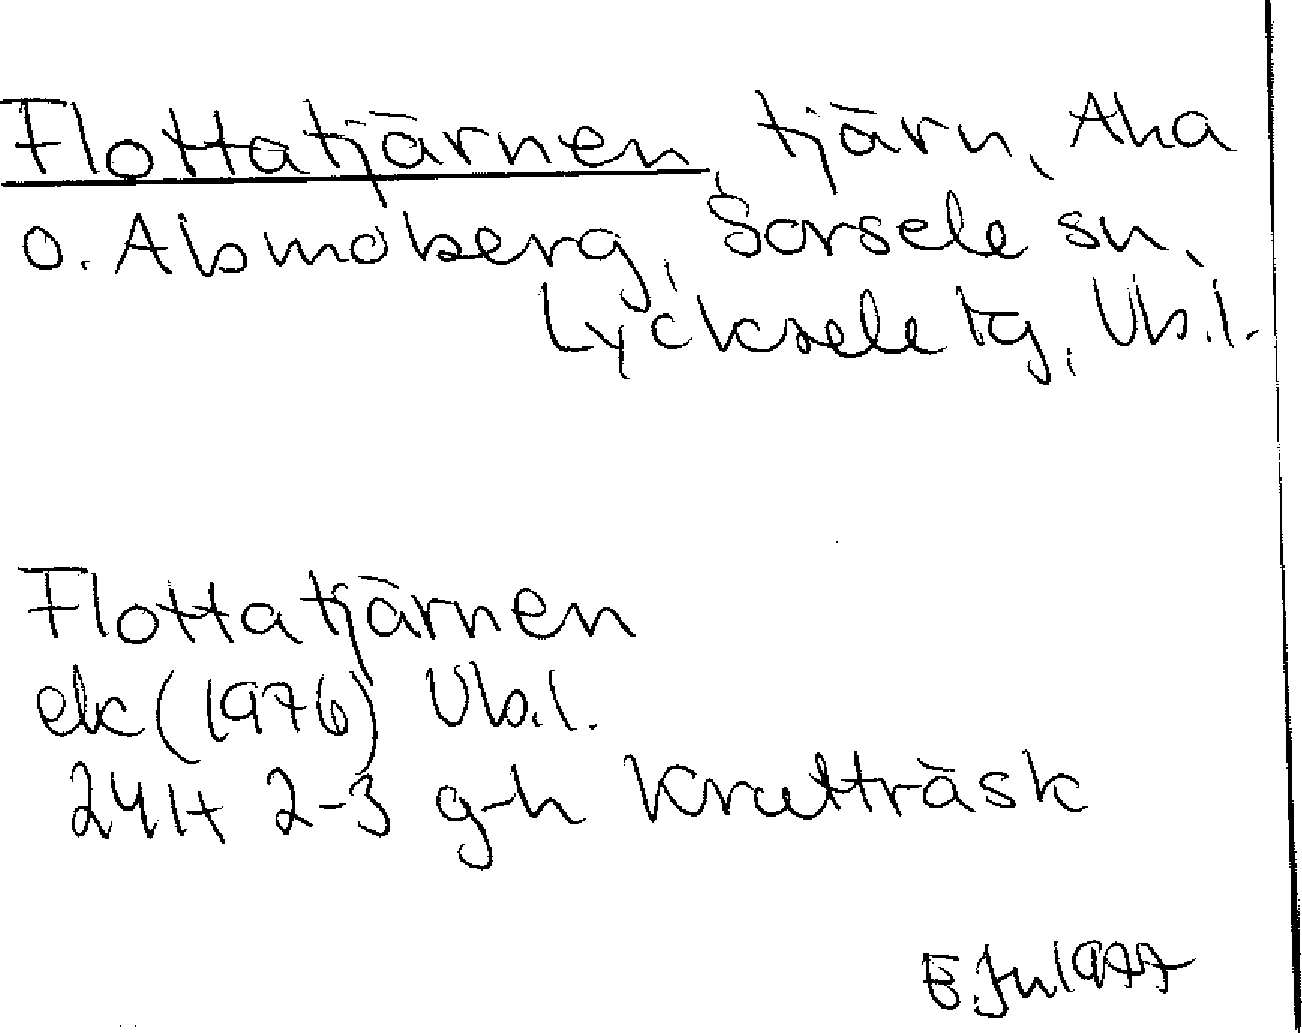 Flottatjärnen, tjärn, Aha
o. Abmoberg, Sorsele sn,
Lycksele tg, Vb.l.
Flottatjärnen
ek (1976) Vb.l.
24H 2-3 g-h Krutträsk
1977